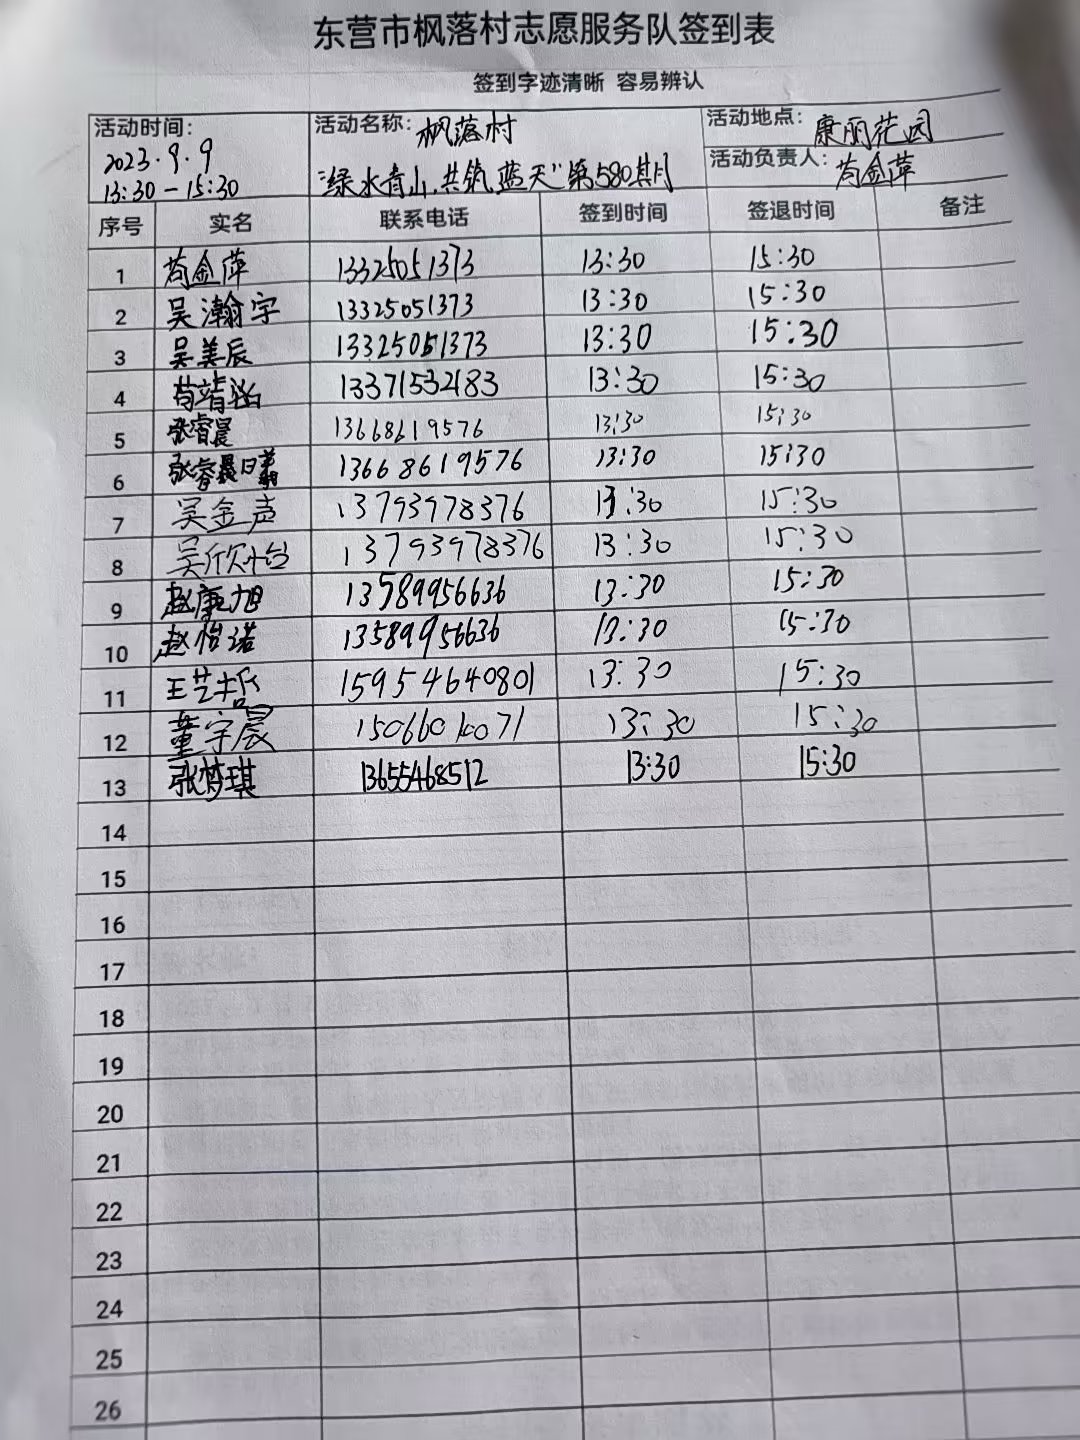 东营市枫落村志愿服务队签到表
签到字迹清晰 容易辨认
活动时间: 2023.9.9 13:30-15:30
活动名称: 枫落村 "绿水青山,共筑蓝天"第580期
活动地点: 康丽花园
活动负责人: 苟金萍
序号 实名 联系电话 签到时间 签退时间 备注
1 苟金萍 13325051373 13:30 15:30
2 吴瀚宇 13325051373 13:30 15:30
3 吴美辰 13325051373 13:30 15:30
4 苟靖涵 13371532483 13:30 15:30
5 张睿晨 13668619576 13:30 15:30
6 张睿晨日 13668619576 13:30 15:30
7 吴金声 13793978376 13:30 15:30
8 吴欣怡 13793978376 13:30 15:30
9 赵康旭 13589956636 13:30 15:30
10 赵怡诺 13589956636 13:30 15:30
11 王艺哲 15954640801 13:30 15:30
12 董宇晨 13:30 15:30
13 张梦琪 13655468512 13:30 15:30
14
15
16
17
18
19
20
21
22
23
24
25
26